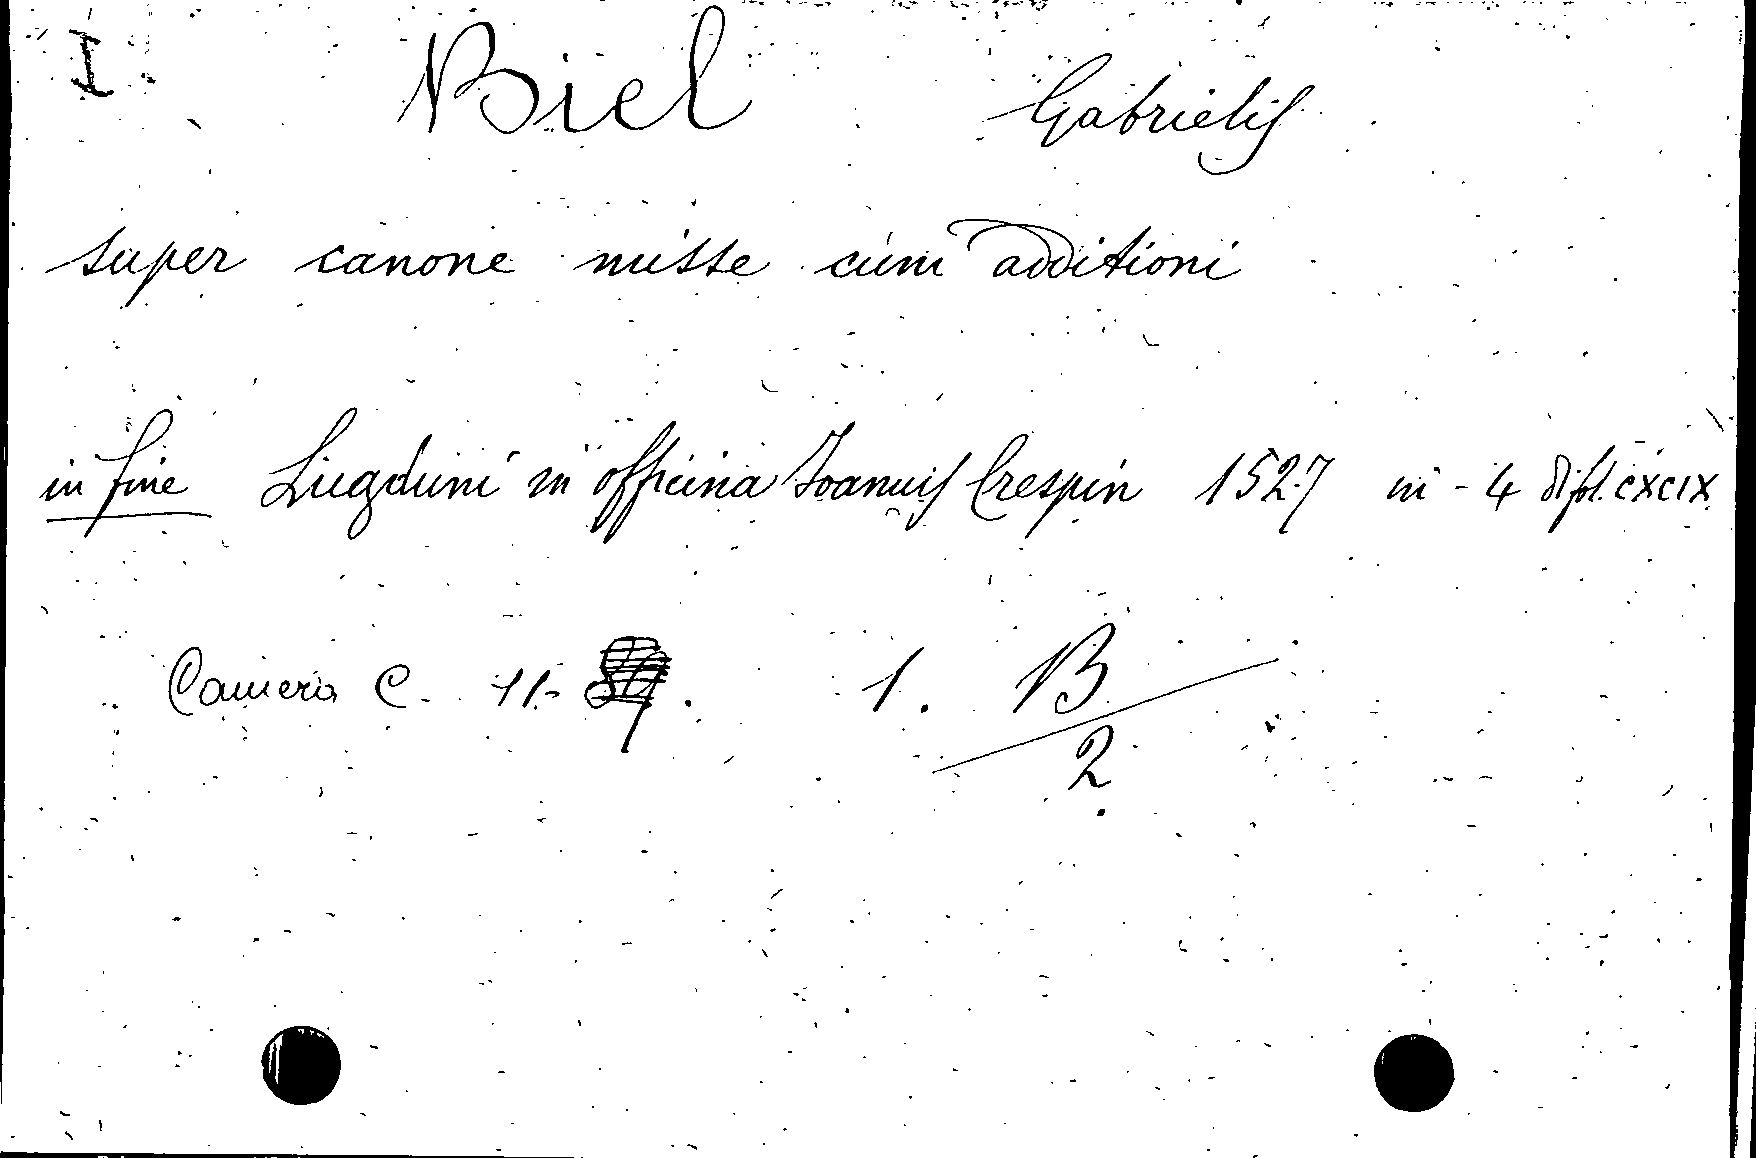 I Biel Gabrielis
super canone misse cum additioni
in fine Lugduni in officina Ioannis Crespin 1527 in-4 di fol. CXCIX
Camera C. 11- . 1. B
2